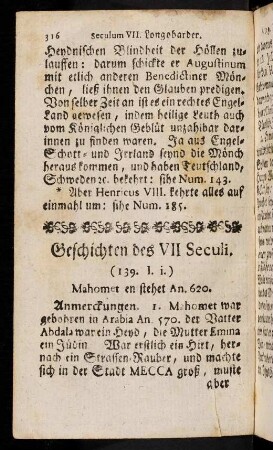 316 Seculum VII. Longobarder.
Heydnischen Blindheit der Höllen zu-
lauffen: darum schickte er Augustinum
mit etlich anderen Benedictiner Mön-
chen, ließ ihnen den Glauben predigen.
Von selber Zeit an ist es ein rechtes Engel-
Land gewesen, indem heilige Leuth auch
vom Königlichen Geblüt unzahlbar dar-
innen zu finden waren. Ja aus Engel-
Schott- und Irrland seynd die Mönch
heraus kommen, und haben Teutschland,
Schweden ꝛc. bekehrt: sihe Num. 143.
* Aber Henricus VIII. kehrte alles auf
einmahl um: sihe Num. 185.
Geschichten des VII Seculi.
(139. l. i.)
Mahomet en stehet An. 620.
Anmerckungen. 1. Mahomet war
gebohren in Arabia An. 570. der Vatter
Abdala war ein Heyd, die Mutter Emina
ein Jüdin War erstlich ein Hirt, her-
nach ein Strassen-Rauber, und machte
sich in der Stadt MECCA groß, muste
aber